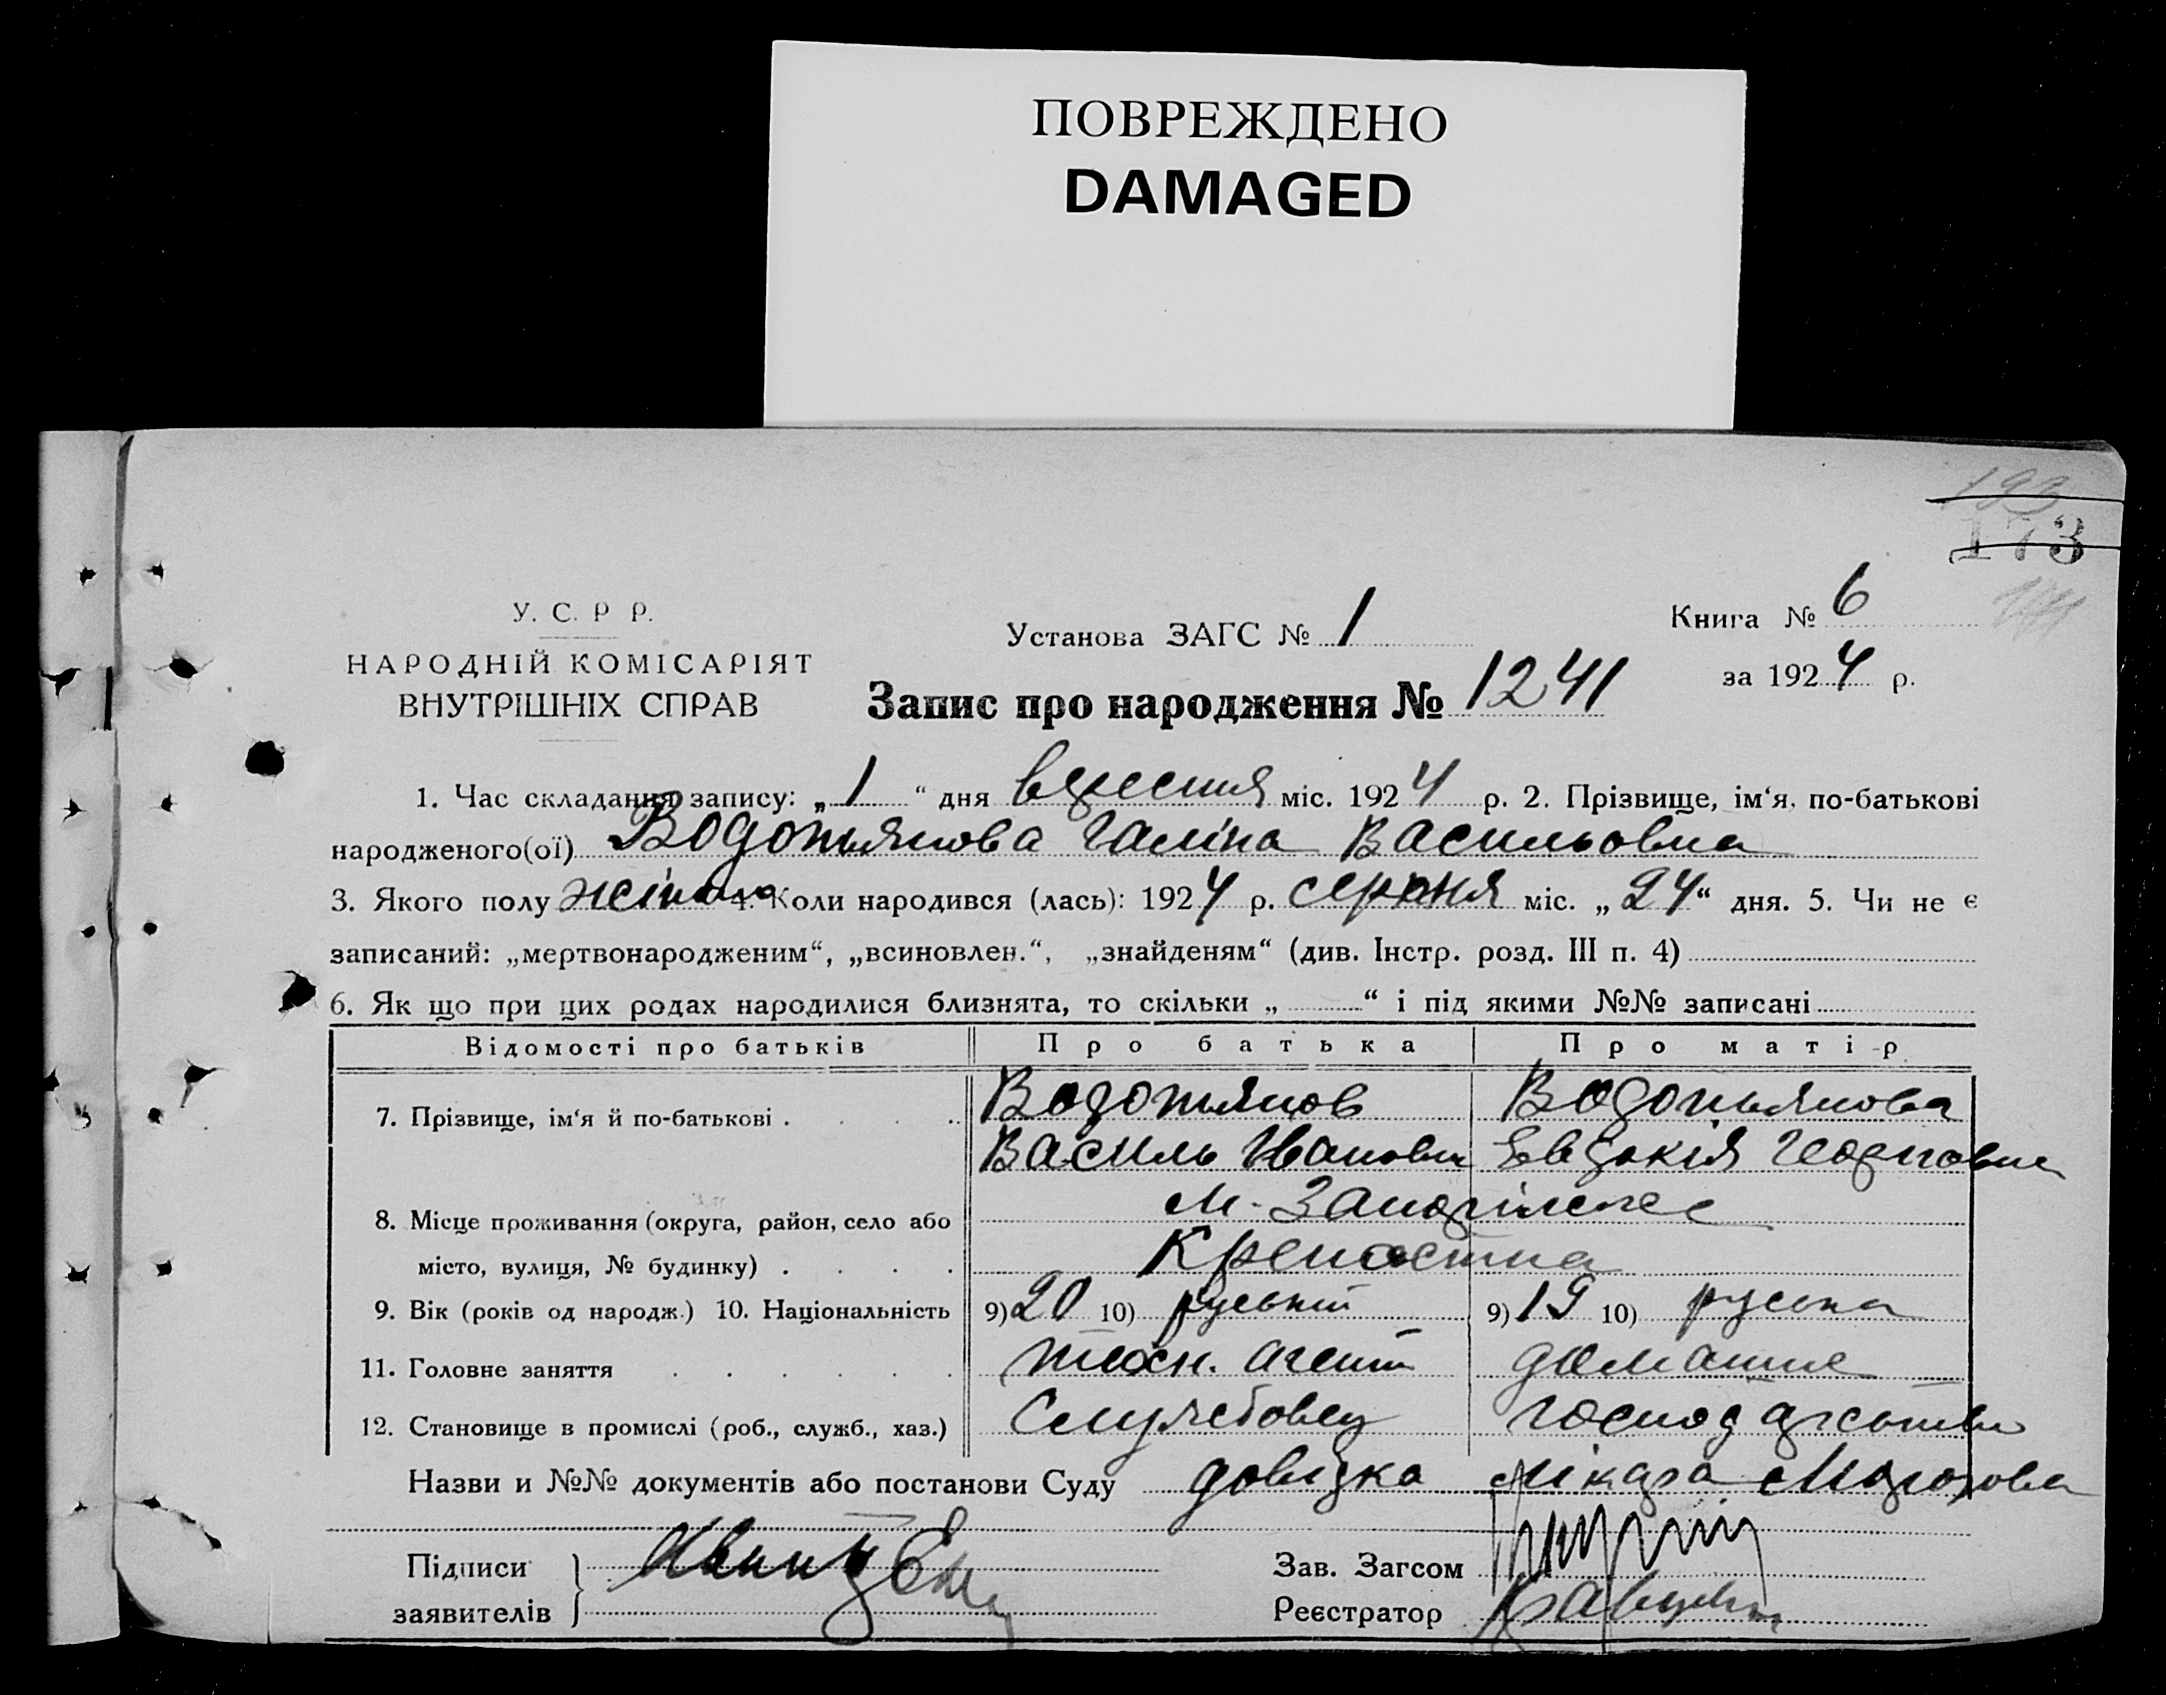 ПОВРЕЖДЕНО
DAMAGED
193
173
У. С. Р Р.
НАРОДНІЙ КОМІСАРІЯТ
ВНУТРІШНІХ СПРАВ
Установа ЗАГС № 1
Книга № 6
за 1924 р.
Запис про народження № 1241
1. Час складання запису: „1“ дня вересня міс. 1924 р. 2. Прізвище, ім‘я, по-батькові
народженого(ої) Водопьянова Галіна Васильовна
3. Якого полу жіноча 4. Коли народився (лась): 1924 р. серпня міс. „24“ дня. 5. Чи не є
записаний: „мертвонародженим“, „всиновлен.“, „знайденям“ (див. Інстр. розд. III п. 4)
6. Як що при цих родах народилися близнята, то скільки „ “ і під якими №№ записані
Відомості про батьків Про батька Про матір
7. Прізвище, ім‘я й по-батькові Водопьянов Водопьянова
Василь Іванович Евдокія Георговна
8. Місце проживання (округа, район, село або м. Запоріжже
місто, вулиця, № будинку) Крепостна
9. Вік (років од народж.) 10. Національність 9) 20 10) руський 9) 19 10) руська
11. Головне заняття техн. агент домашне
12. Становище в промислі (роб., служб., хаз.) Службовец господарство
Назви и №№ документів або постанови Суду довідка лікаря Морозова
Підписи
заявителів
Зав. Загсом
Реєстратор